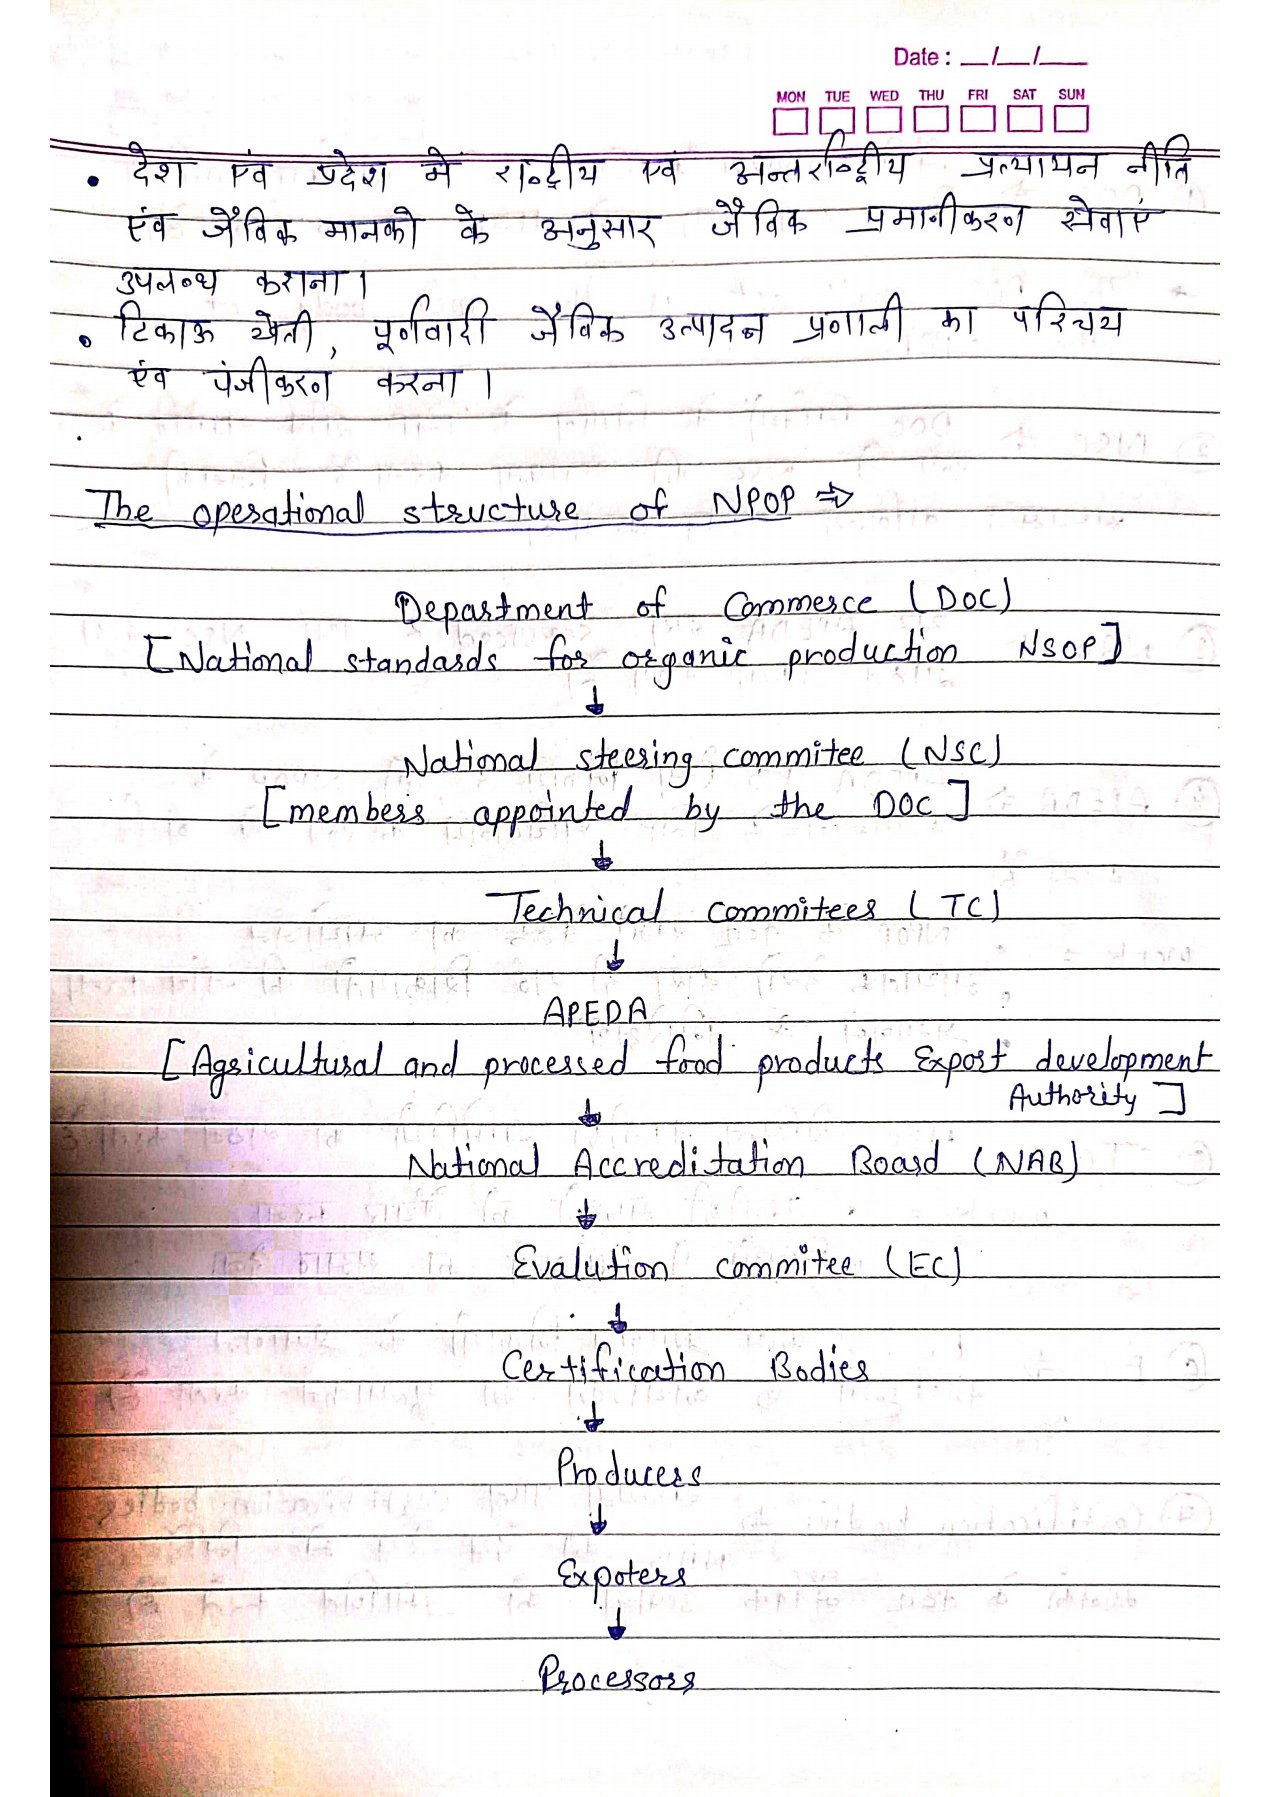 Date : __/__/__
MON TUE WED THU FRI SAT SUN
• देश एंव प्रदेश में राष्ट्रीय एवं अन्तर्राष्ट्रीय प्रत्यायन नीति
एंव जैविक मानको के अनुसार जैविक प्रमाणीकरण सेवाएं
उपलब्ध कराना।
• टिकाऊ खेती, पूर्णवादी जैविक उत्पादन प्रणाली का परिचय
एंव पंजीकरण करना।
The operational structure of NPOP ⇒
Department of Commerce (DOC)
[National standards for organic production NSOP]
↓
National steering commitee (NSC)
[members appointed by the DOC]
↓
Technical commitees (TC)
↓
APEDA
[Agricultural and processed food products Export development
Authority]
↓
National Accreditation Board (NAB)
↓
Evalution commitee (EC)
↓
Certification Bodies
↓
Producers
↓
Expoters
↓
Processors